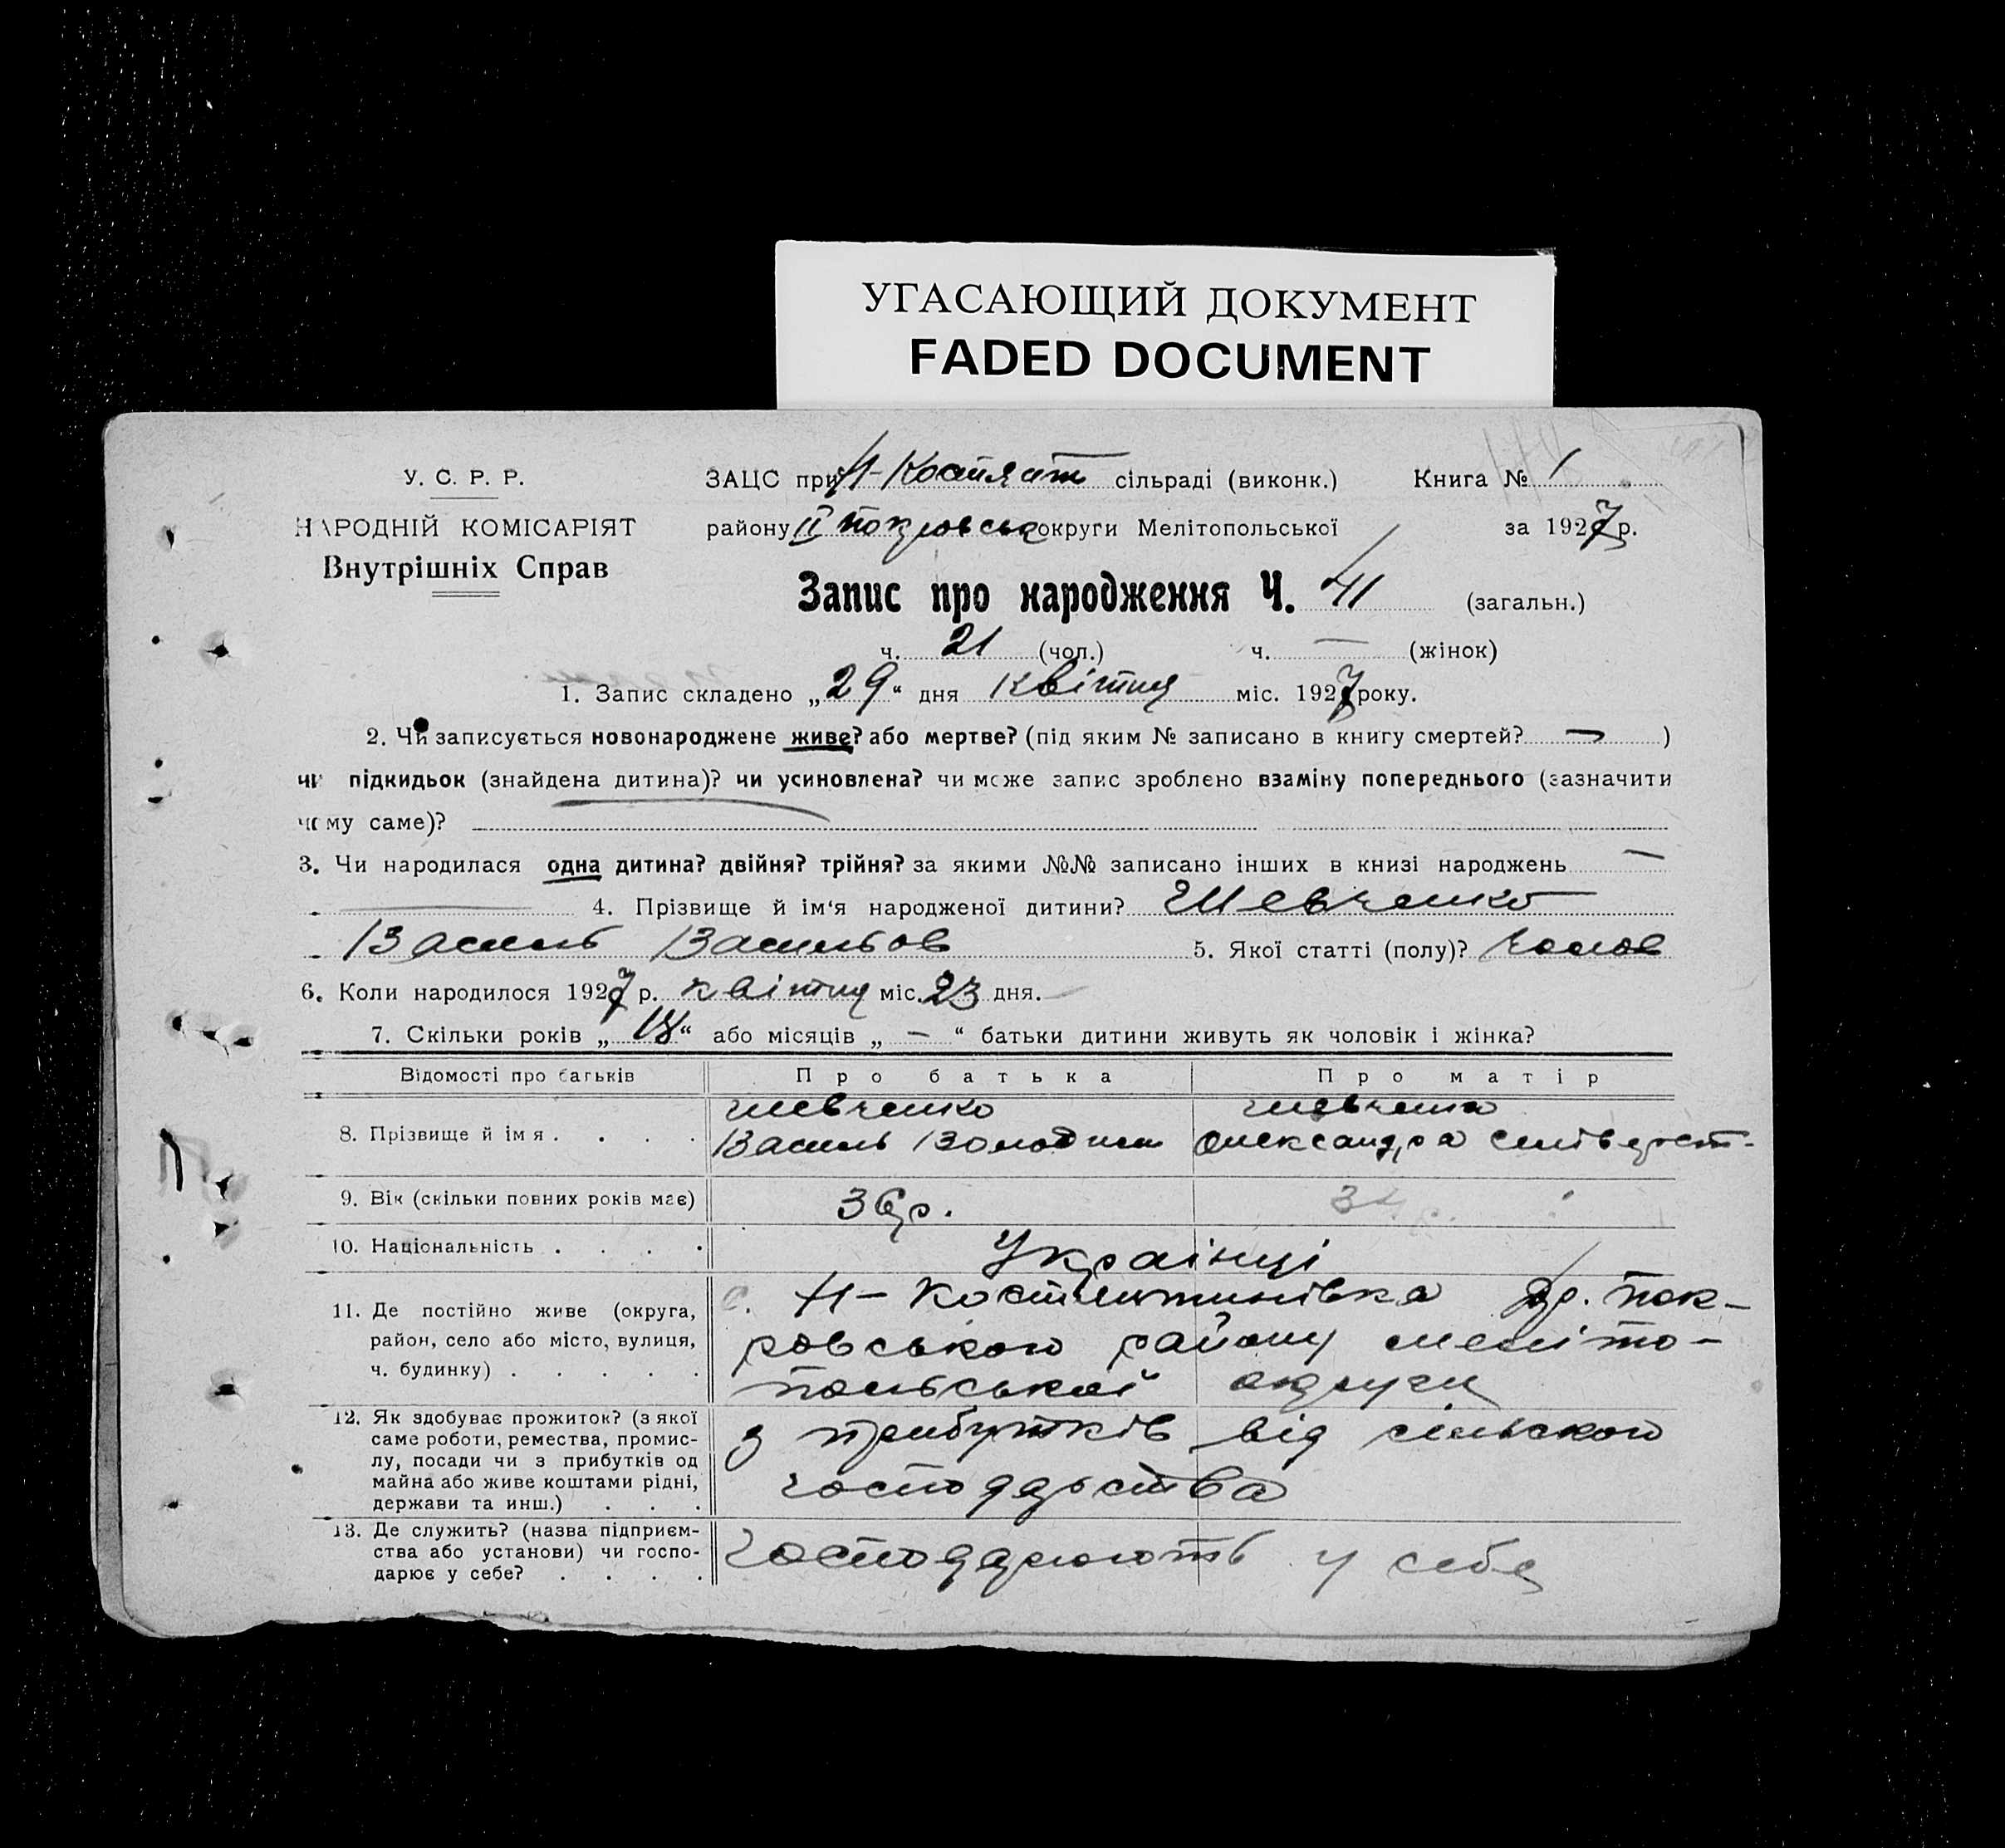 УГАСАЮЩИЙ ДОКУМЕНТ
FADED DOCUMENT
У. С. Р. Р.
НАРОДНІЙ КОМІСАРІЯТ
Внутрішніх Справ
ЗАЦС при Н-Костянт сільраді (виконк.) Книга № 1
району ІІ Покровськ округи Мелітопольської за 1927 р.
Запис про народження Ч. 41 (загальн.)
ч. 21 (чол.) ч. — (жінок)
1. Запис складено „29“ дня квітня міс. 1927 року.
2. Чи записується новонароджене живе? або мертве? (під яким № записано в книгу смертей? — )
чи підкидьок (знайдена дитина)? чи усиновлена? чи може запис зроблено взаміну попереднього (зазначити
чому саме)?
3. Чи народилася одна дитина? двійня? трійня? за якими №№ записано інших в книзі народжень —
— 4. Прізвище й ім‘я народженої дитини? Шевченко
Василь Васильов 5. Якої статті (полу)? чолов
6. Коли народилося 1927 р. квітня міс. 23 дня.
7. Скільки років „18“ або місяців „ — “ батьки дитини живуть як чоловік і жінка?
Відомості про батьків Про батька Про матір
8. Прізвище й ім я . . . . Шевченко Василь Володим Шевченко Олександра Селіверст-
9. Вік (скільки повних років має) 36 р. 34 р.
10. Національність . . . . Українці
11. Де постійно живе (округа, район, село або місто, вулиця, ч. будинку) . . . . . с. Н-Костянтинівка Др. Пок-
ровського району меліто-
польської округи
12. Як здобуває прожиток? (з якої саме роботи, ремества, промис-лу, посади чи з прибутків од майна або живе коштами рідні, держави та инш.) . . . з прибутків від сільского
господарства
13. Де служить? (назва підприєм-ства або установи) чи госпо-дарює у себе? . . . . Господарюють у себе